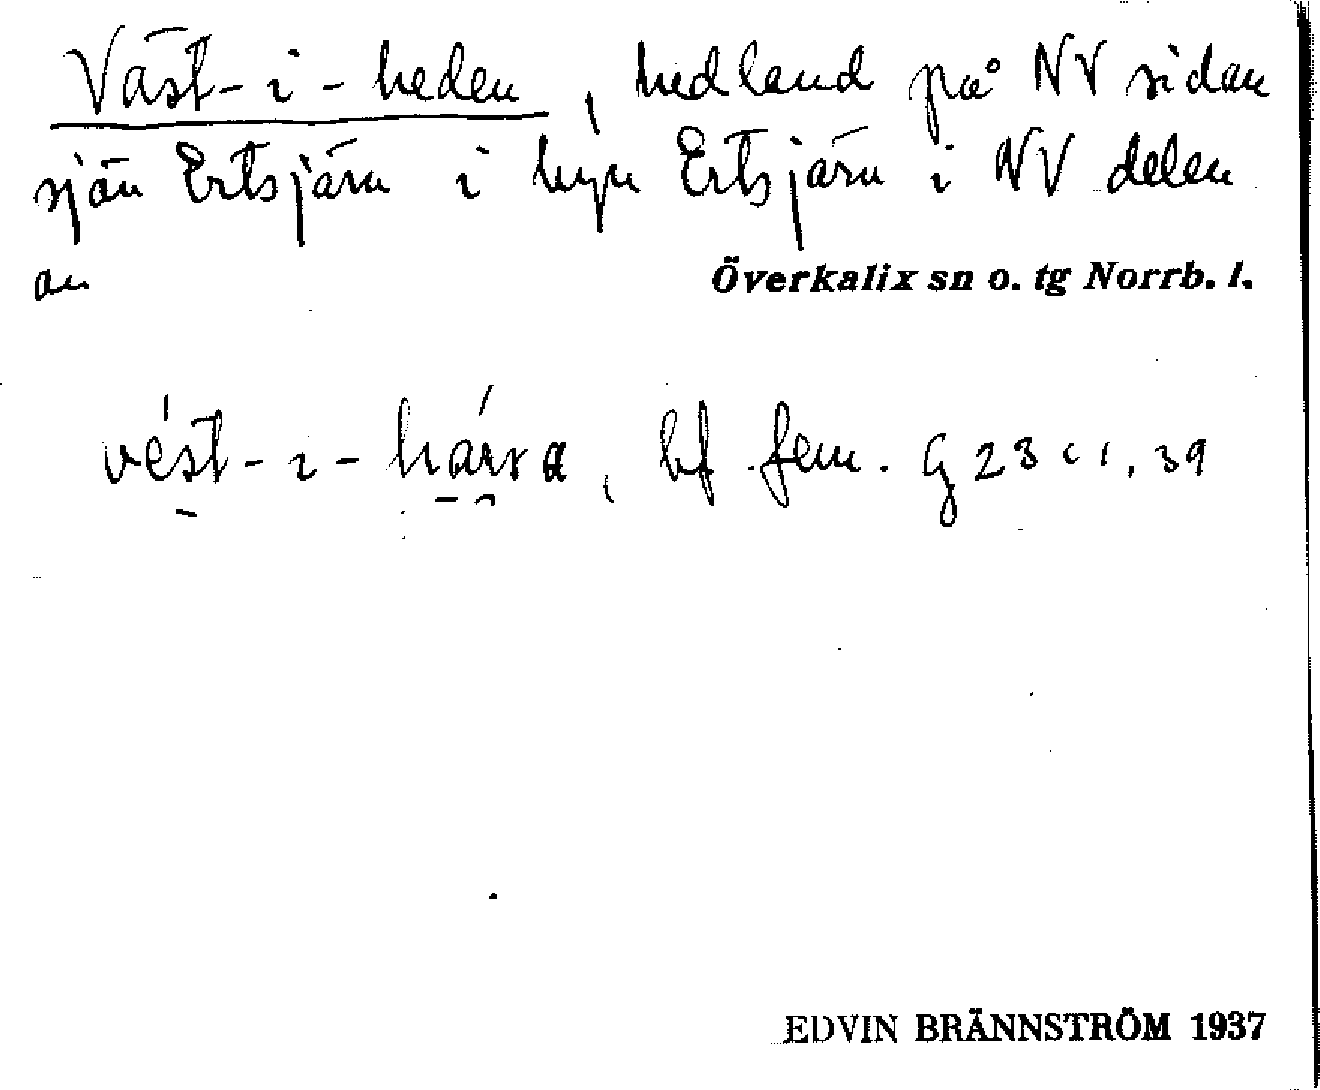 Väst-i-heden, hedland på NV sidan
sjön Ertsjärn i byn Ertsjärn i NV delen
av Överkalix sn o. tg Norrb. l.
vést-ı- , bf fem. G 23 c 1, 39
EDVIN BRÄNNSTRÖM 1937